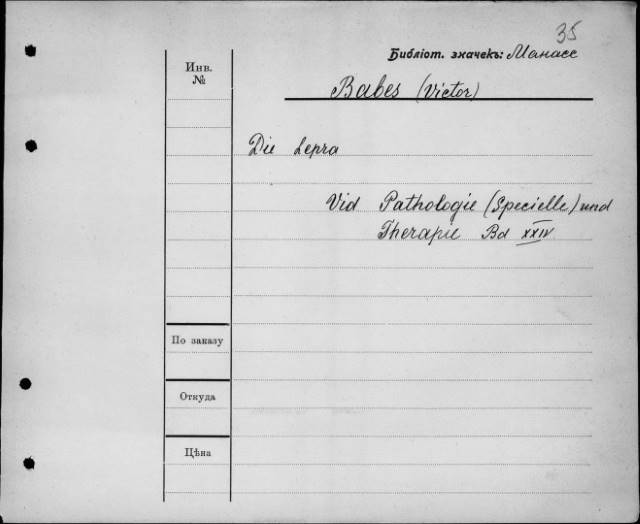 35
Библіот. значекъ: Манасс
Инв.
№
Babes (Victor)
Die Lepra
Vid Pathologie (Specielle) und
Therapie Bd XXIV
По заказу
Откуда
Цѣна